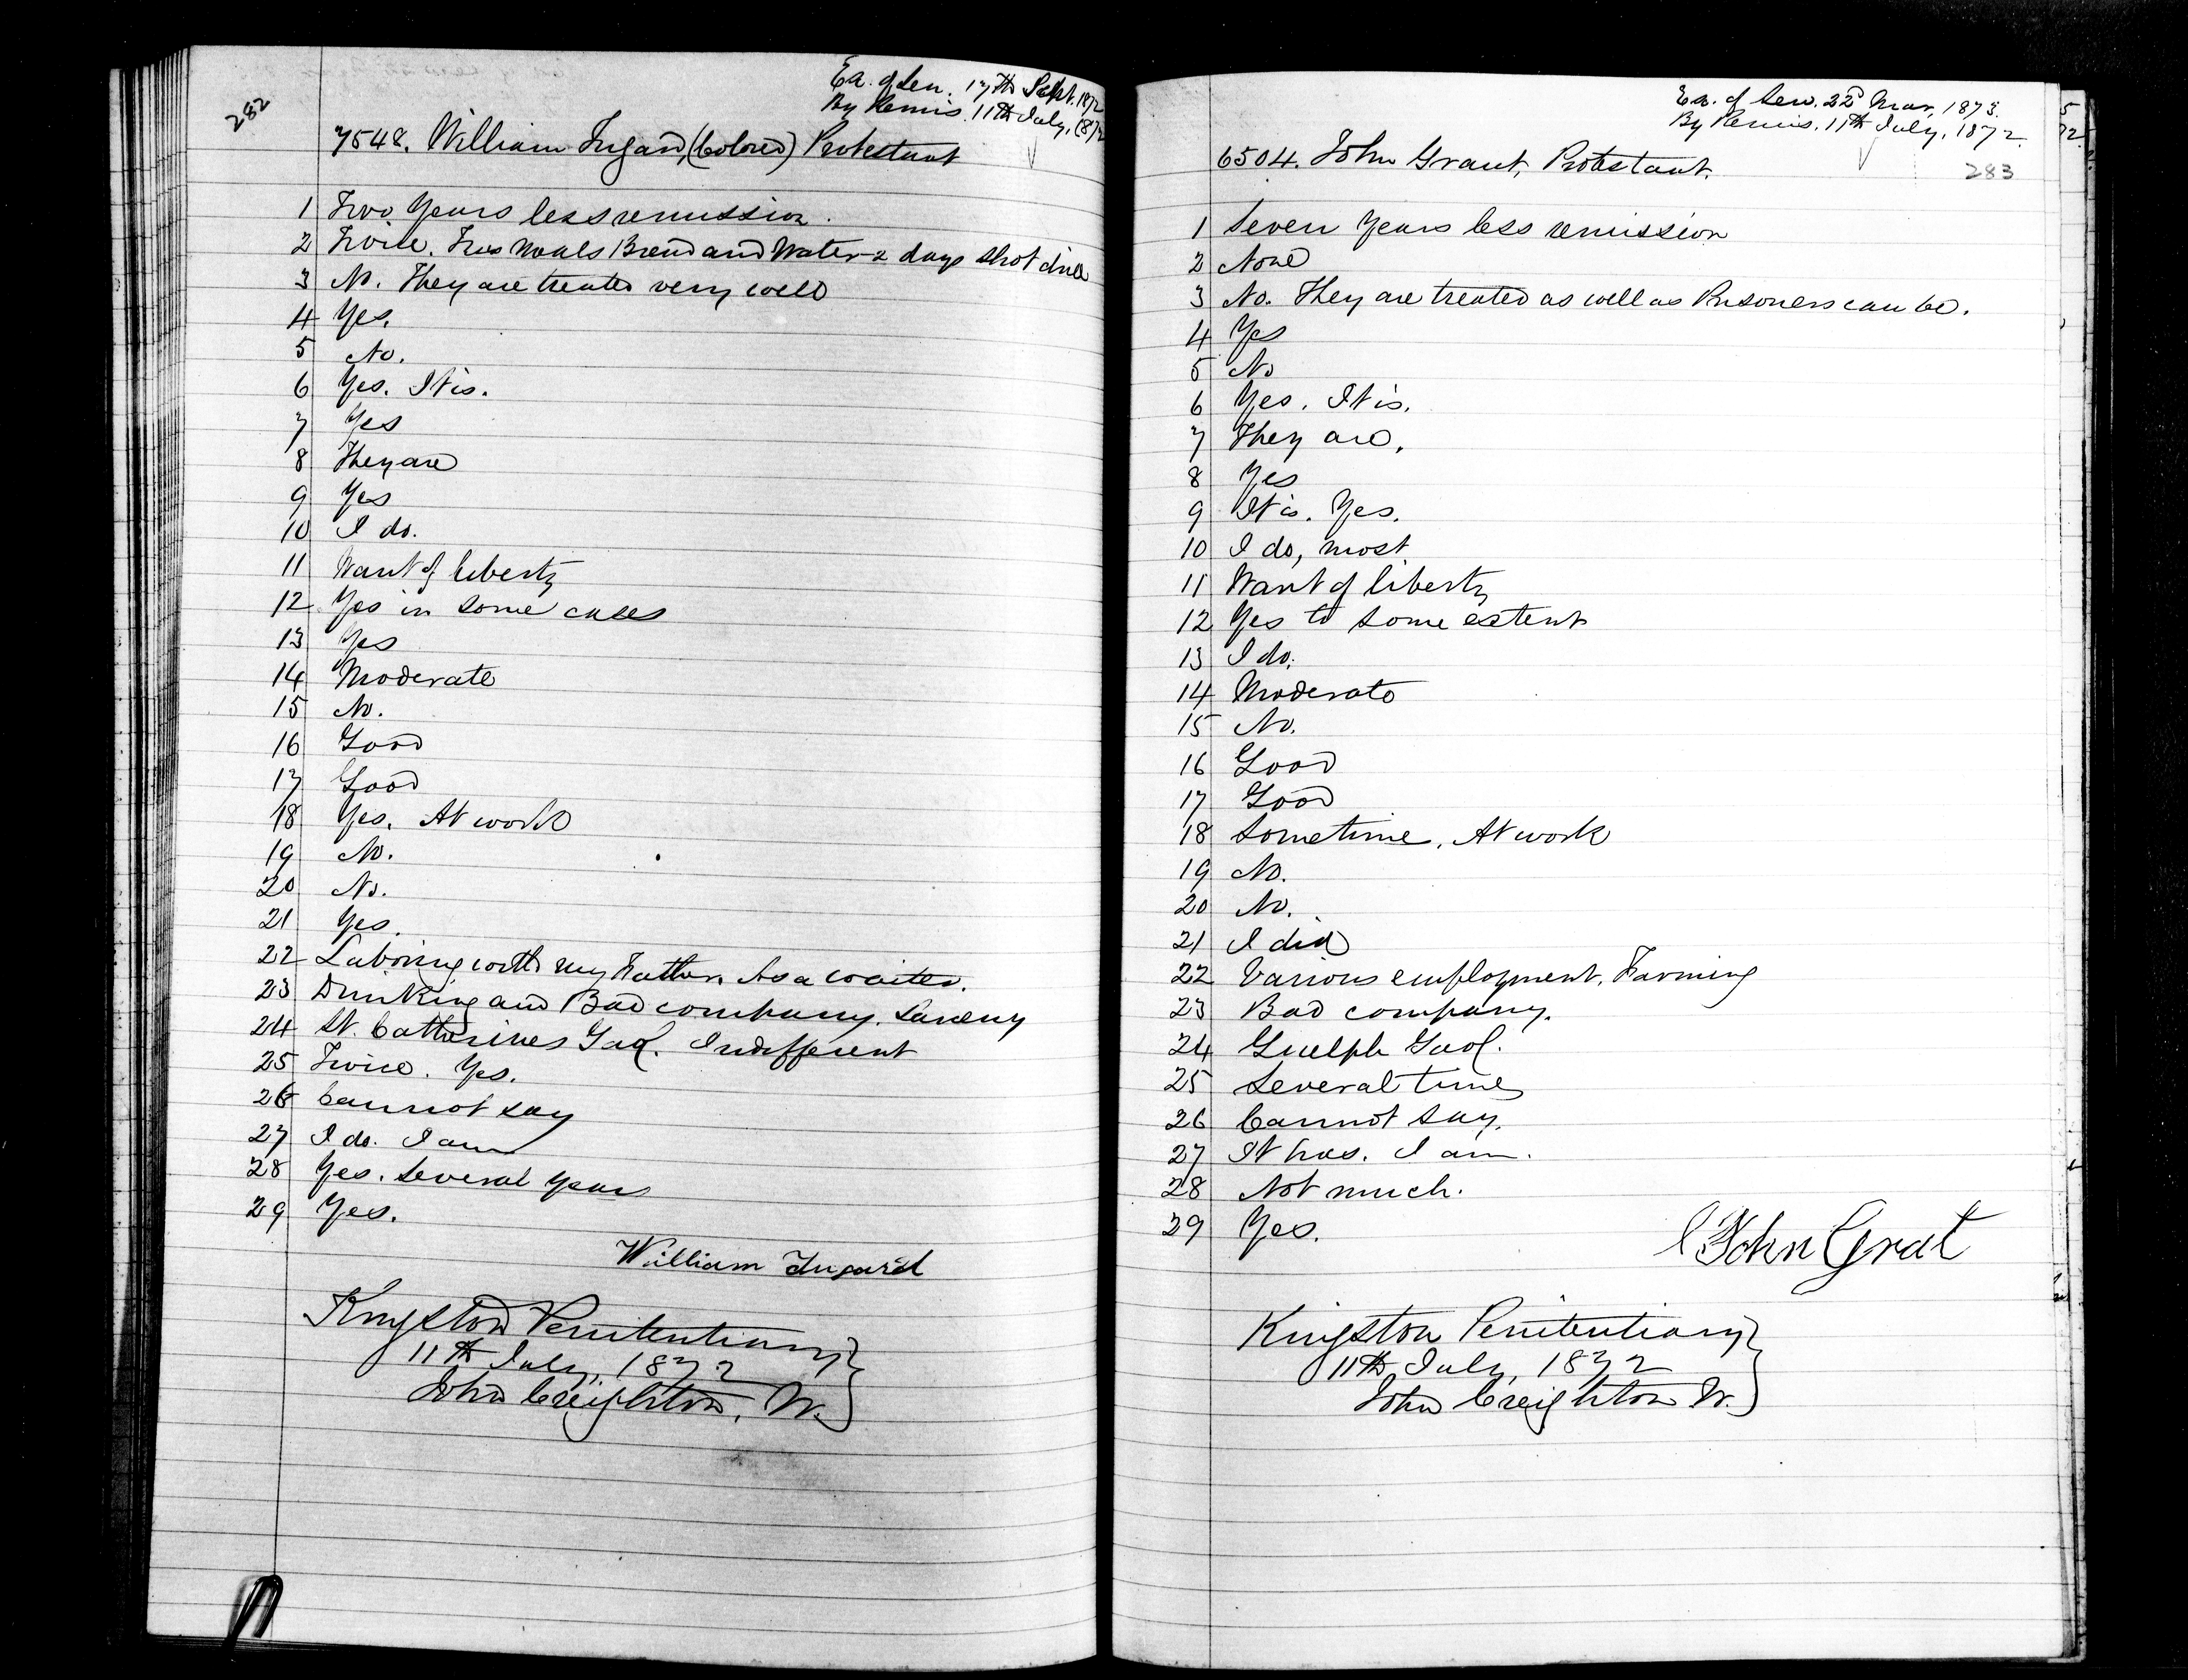 282
Ex. of Sen. 17th Sept. 1872
By Remis. 11th July, 1872
7548. William Ingard, (Colored) Protestant
1 Two Years less remission.
2 Twice. Two Meals Bread and Water 2 days Shot drill
3 No. They are treated very well
4 Yes.
5 No.
6 Yes. It is.
7 Yes
8 They are
9 Yes
10 I do.
11 Want of liberty
12 Yes in some cases
13 Yes
14 Moderate
15 No.
16 Good
17 Good
18 Yes. At work
19 No.
20 No.
21 Yes.
22 Laboring with my Father. As a waiter.
23 Drinking and Bad company. Larceny
24 St. Catharines Gaol. Indifferent
25 Twice. Yes.
26 Cannot say
27 I do. I am
28 Yes. Several years
29 Yes.
William Ingard
Kingston Penitentiary
11th July, 1872
John Creighton, W.
Ex. of Sen. 22d Mar, 1873.
By Remis. 11th July, 1872.
6504. John Grant, Protestant.
283
1 Seven Years less remission
2 None
3 No. They are treated as well as Prisoners can be.
4 Yes
5 No
6 Yes. It is.
7 They are.
8 Yes
9 It is. Yes.
10 I do, most
11 Want of liberty
12 Yes to some extent
13 I do.
14 Moderate
15 No.
16 Good
17 Good
18 Sometime. At work
19 No.
20 No.
21 I did
22 Various employment. Farming
23 Bad company.
24 Guelph Gaol.
25 Several times
26 Cannot say.
27 It has. I am.
28 Not much.
29 Yes.
John Grat
Kingston Penitentiary
11th July, 1872
John Creighton W.